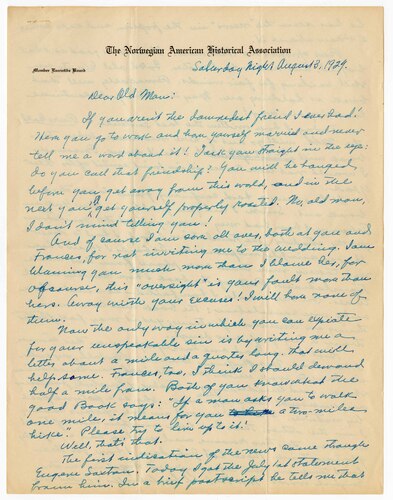 The Norwegian American Historical Association
Member Executive Board
Saturday Night August 3, 1929.
Dear Old Man:
If you aren't the damnedest friend I ever had!
Here you go to work and have yourself married and never
tell me a word about it! I ask you straight in the eye:
do you call that friendship? You will be hanged
before you get away from this world, and in the
next you'll get yourself properly roasted. No, old man,
I don't mind telling you!
And of course I am sore all over, both at you and
Frances, for not inviting me to the wedding. I am
blaming you much more than I blame her, for
of course, this "oversight" is your fault more than
hers. Away with your excuses! I will have none of
them.
Now the only way in which you can expiate
for your unspeakable sin is by writing me a
letter about a mile and a quarter long, that will
help some. Frances, too, I think I should demand
half a mile from. Both of you know what the
good Book says: "If a man asks you to walk
one mile, it means for you a two-miles
hike". Please try to live up to it!
Well, that's that.
The first indication of the news came through
Eugene Saxton. Today I got the July 1st statement
from him. In a brief postscript he tells me that